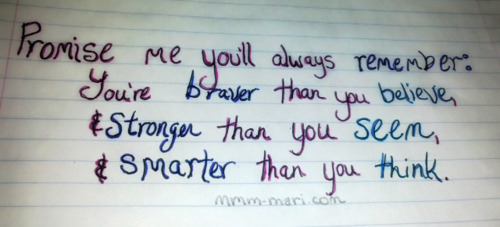 Promise me you'll always remember:
You're braver than you believe,
& Stronger than you seem,
& smarter than you think.
mmm-mari.com